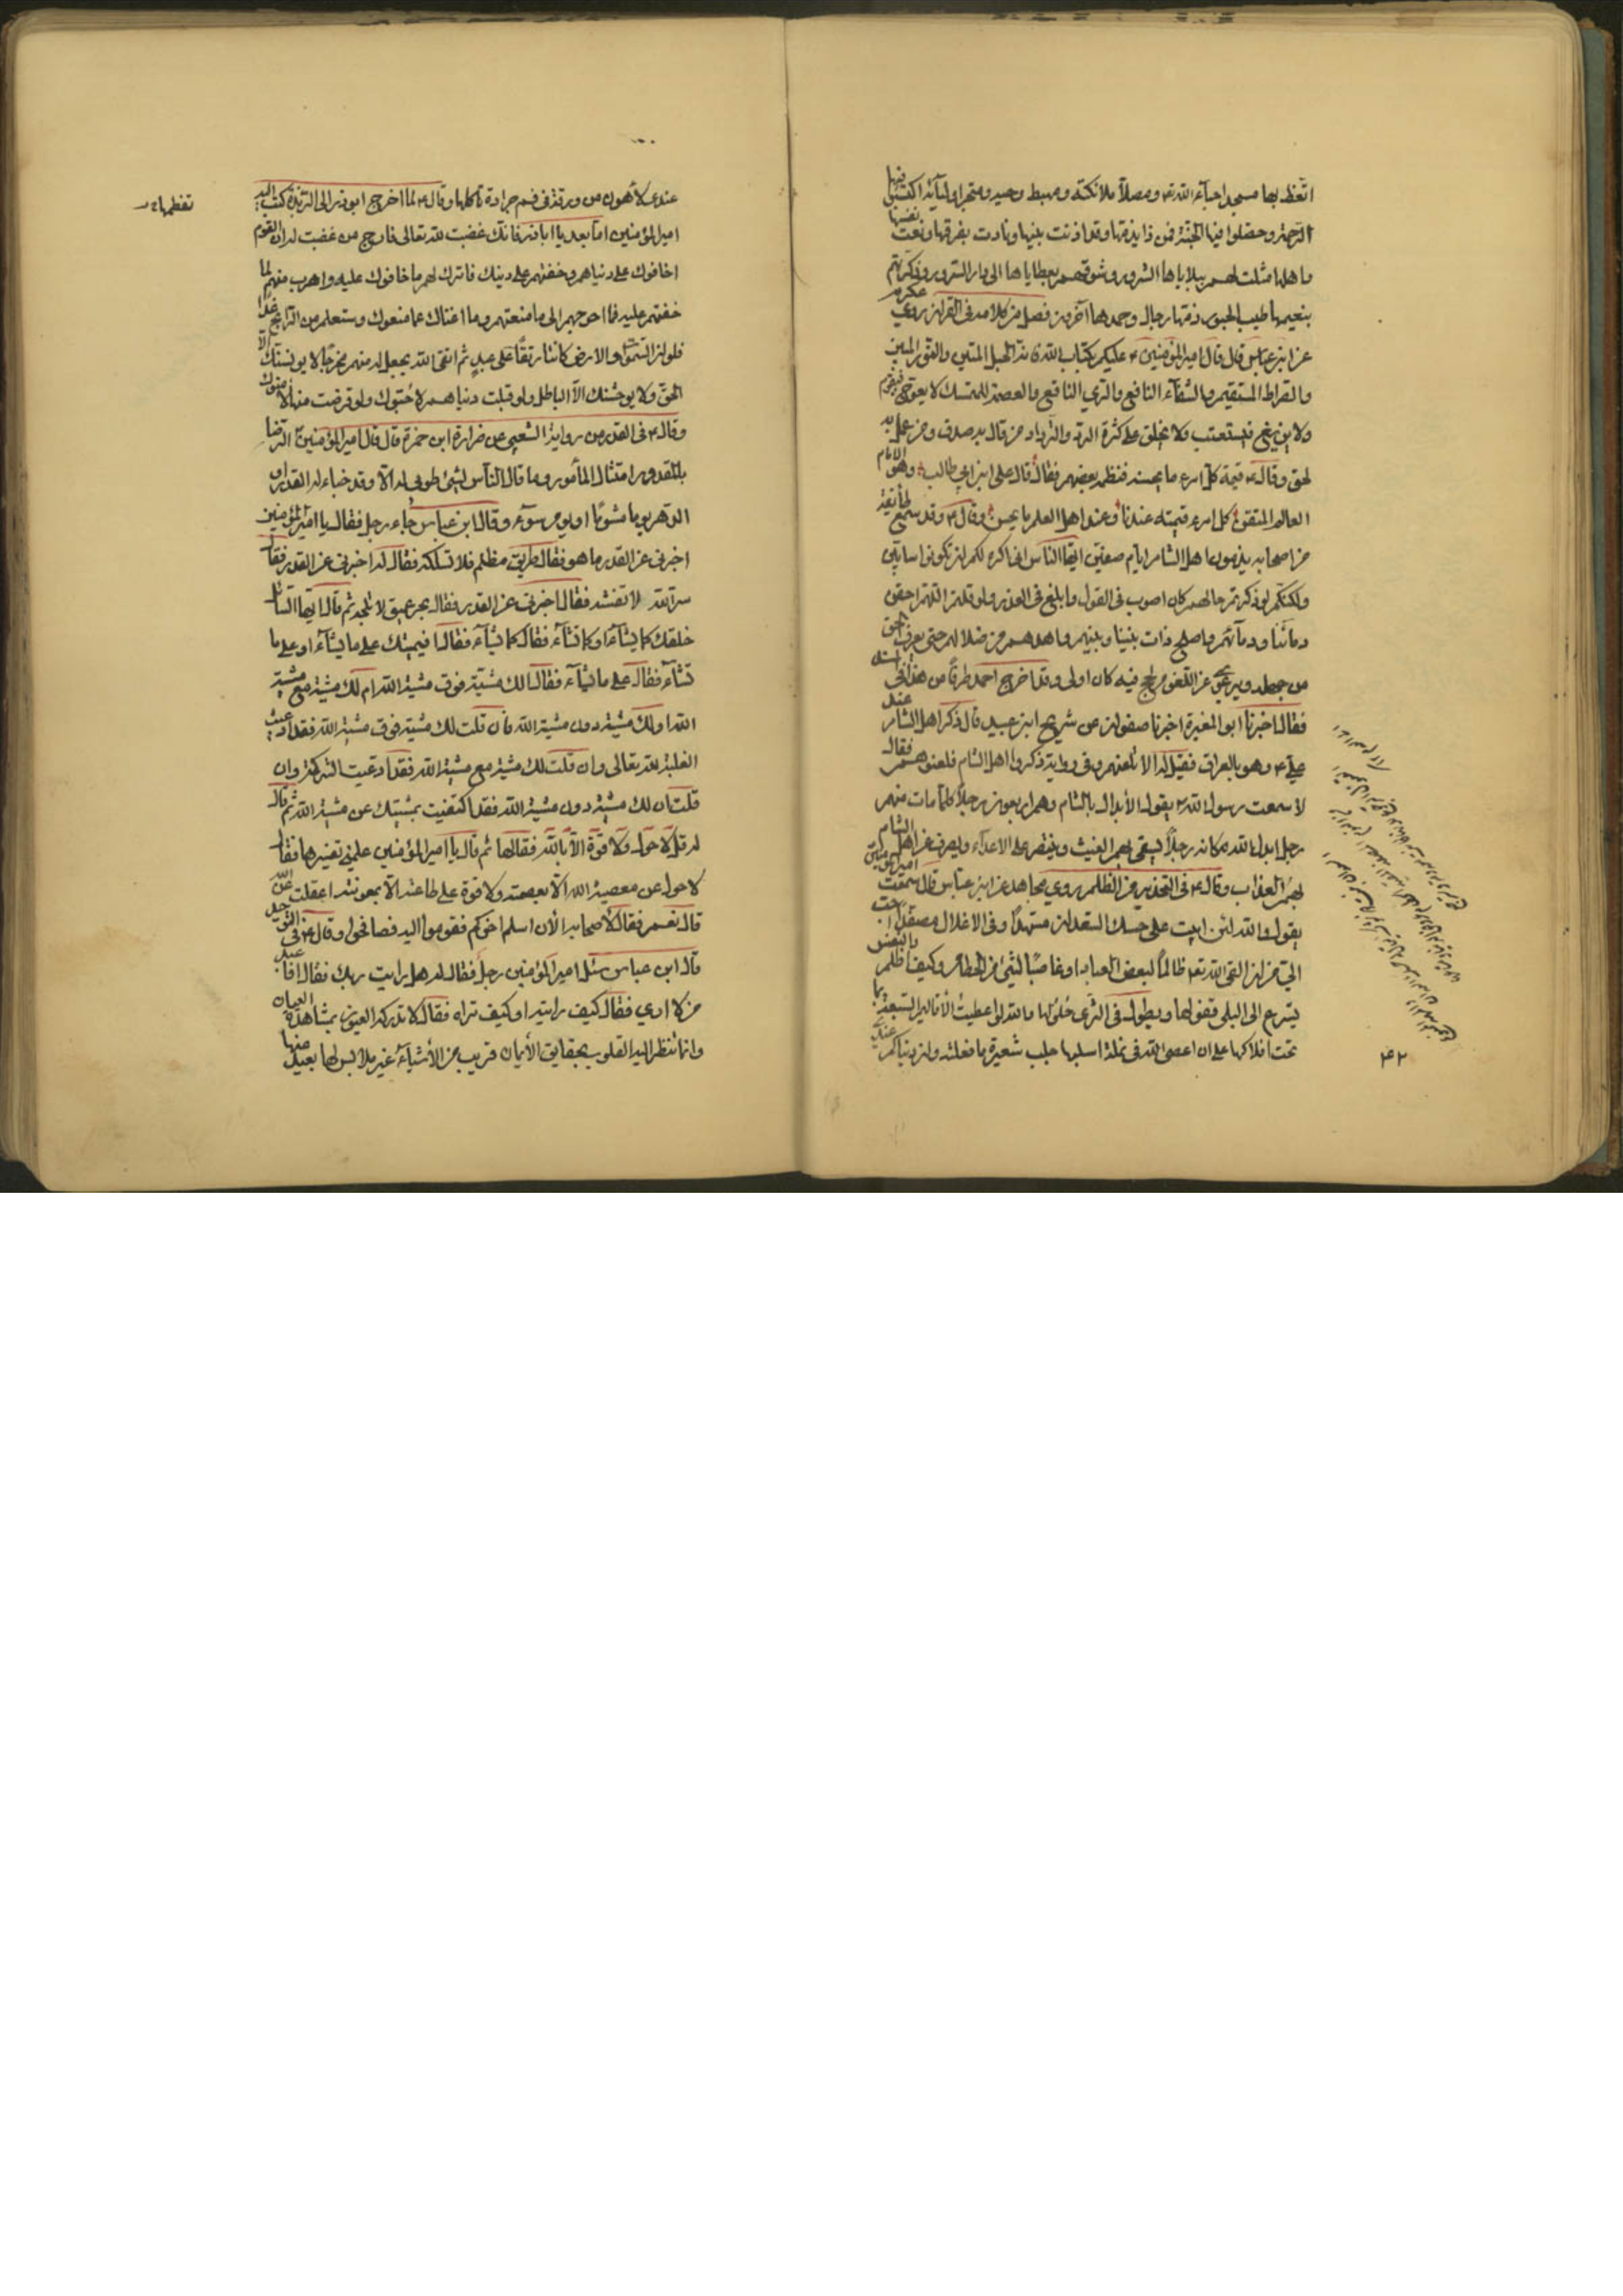 اتعظ بها مسجد احباء الله تع ومصلا ملائكته ومهبط وحيه ومتجر اوليائه اكتسبوا فيها
الرحمة وحصلوا فيها الجنة فمن ذا يذمها وقد اذنت ببينها ونادت بفرقها ونعت نفسها
واهلها مثلت لهم ببلاياها الشرور وشوقهم بعطاياها الى دار السرور وذكرتهم
بنعيمها طيب الحبور ذمها رجال وحمدها آخرون فصل من كلامه في القرآن روي عكرمه
عن ابن عباس قال قال امير المؤمنين ع عليكم بكتاب الله فانه الحبل المتين والنور المبين
والصراط المستقيم والشفاء النافع والري الناقع والعصمة للمتمسك لا يعوج فيقوم
ولا يزيغ فيستعتب ولا يخلق على كثرة الرد والترداد من قال به صدق ومن عمل به
لحق وقال ع قيمة كل امرء ما يحسنه فنظمه بعضهم فقال قال علي ابن ابي طالب وهو الامام
العالم المتقن كل امرء قيمته عندنا وعند اهل العلم ما يحسن وقال ع وقد سمع
من اصحابه يذمون اهل الشام ايام صفين ايها الناس اني اكره لكم ان تكونوا سبابين
ولكنكم لو ذكرتم حالهم كان اصوب في القول وابلغ في العذر ولو قلتم اللهم احقن
دمائنا ودمائهم واصلح ذات بيننا وبينهم واهدهم من ضلالهم حتى يعرف الحق
من جهله ويرعوي عن اللغو من لج فيه كان اولى وقد اخرج احمد طرفا من هذا في
فقال اخبرنا ابو المغيرة اخبرنا صفوان عن شريح ابن عبيد قال ذكر اهل الشام عند
علي ع وهو بالعراق فقيل له الا تلعنهم وفي رواية ذكروا اهل الشام فلعنوهم فقال
لا سمعت رسول الله يقول الأبدال بالشام وهم اربعون رجلا كلما مات منهم
رجل ابدل الله مكانه رجلا يسقى بهم الغيث وينتصر على الاعداء ويصرف عن اهل الشام
بهم العذاب وقال ع في التحذير من الظلم روي مجاهد عن ابن عباس قال سمعت امير المؤمنين
يقول والله لئن ابيت على حسك السعدان مسهدا وفي الاغلال مصفدا احب
الي من ان القى الله تع ظالما لبعض العباد او غاصبا لشئ من الحطام وكيف اظلم
يسرع الى البلى قفولها ويطول في الثرى حلولها والله لو اعطيت الأقاليم السبعة بما
تحت افلاكها على ان اعصي الله في نملة اسلبها جلب شعيرة ما فعلته وان دنياكم
٤٢
عندي لأهون من ورقة في فم جرادة تأكلها وقال ع لما اخرج ابو ذر الى الربذة كتب اليه
تقظمها
امير المؤمنين اما بعد يا ابا ذر فانك غضبت لله تعالى فارج من غضبت له ان القوم
اخافوك على دنياهم وخفتهم على دينك فاترك لهم ما خافوك عليه واهرب منهم لما
خفتهم عليه فما احوجهم الى ما منعتهم وما اغناك عما منعوك وستعلم من الرابح غدا
فلو ان السموات والارض كانتا رتقا على عبد ثم اتقى الله يجعل له منهم مخرجا لا يونسنك الا
الحق ولا يوحشنك الا الباطل ولو قبلت دنياهم لاحبوك ولو قرضت منها لأمنوك
وقال ع في القدر من رواية الشعبي عن ضرارة ابن حمزة قال قال امير المؤمنين الرضا
بالمقدور امتثال المأمور وما قال الناس لشئ طوبى له الا وقد خباء له القدر او
الدهر يوما مشوما او يوم سوء وقال ابن عباس جاء رجل فقال يا امير المؤمنين
اخبرني عن القدر ما هو فقال طريق مظلم فلا تسلكه فقال له اخبرني عن القدر فقال
سر الله لا تفشه فقال اخبرني عن القدر فقال بحر عميق لا تلجه ثم قال ايها السائل
خلقك كما يشاء او كما تشاء فقال كما يشاء فقال فيميتك على ما يشاء او على ما
تشاء فقال على ما يشاء فقال الك مشية فوق مشية الله ام لك مشية مع مشية
الله او لك مشية دون مشية الله فان قلت لك مشية فوق مشية الله فقد ادعيت
الغلبة لله تعالى وان قلت لك مشية مع مشية الله فقد ادعيت الشركة وان
قلت ان لك مشية دون مشية الله فقد اكتفيت بمشيتك عن مشية الله ثم قال
له قل لا حول ولا قوة الا بالله فقالها ثم قال يا امير المؤمنين علمني تفسيرها فقال
لا حول عن معصية الله الا بعصمته ولا قوة على طاعته الا بمعونته اعقلت عن الله
قال نعم فقال لأصحابه الأن اسلم اخوكم فقوموا اليه فصافحوا وقال ع في التوحيد
قال ابن عباس سئل امير المؤمنين رجل فقال له هل رايت ربك فقال افاعبد
من لا ارى فقال كيف رايته او كيف تراه فقال لا تدركه العيون بمشاهدة العيان
وانما تنظر اليه القلوب بحقايق الأيمان قريب من الأشياء غير ملابس لها بعيد منها